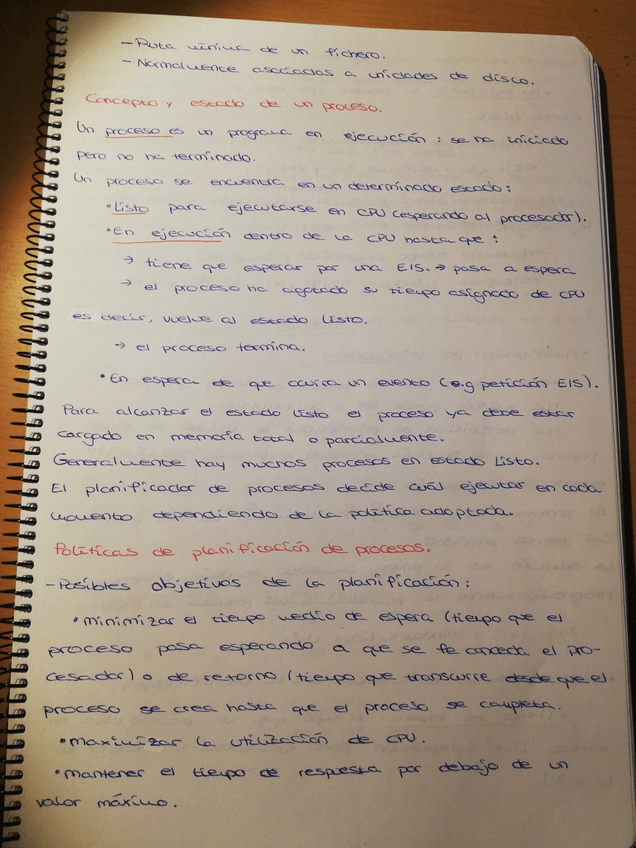 - Ruta mínima de un fichero.
- Normalmente asociadas a unidades de disco.
Concepto y estado de un proceso.
Un proceso es un programa en ejecución : se ha iniciado
pero no ha terminado.
Un proceso se encuentra en un determinado estado :
• Listo para ejecutarse en CPU (esperando al procesador).
• En ejecución dentro de la CPU hasta que :
→ tiene que esperar por una E/S. → pasa a espera
→ el proceso ha agotado su tiempo asignado de CPU
es decir, vuelve al estado listo.
→ el proceso termina.
• En espera de que ocurra un evento (e.g petición E/S).
Para alcanzar el estado listo el proceso ya debe estar
cargado en memoria total o parcialmente.
Generalmente hay muchos procesos en estado listo.
El planificador de procesos decide cuál ejecutar en cada
momento dependiendo de la política adoptada.
Políticas de planificación de procesos.
- Posibles objetivos de la planificación :
• minimizar el tiempo medio de espera (tiempo que el
proceso pasa esperando a que se le conceda el pro-
cesador) o de retorno (tiempo que transcurre desde que el
proceso se crea hasta que el proceso se completa.
• maximizar la utilización de CPU.
• mantener el tiempo de respuesta por debajo de un
valor máximo.